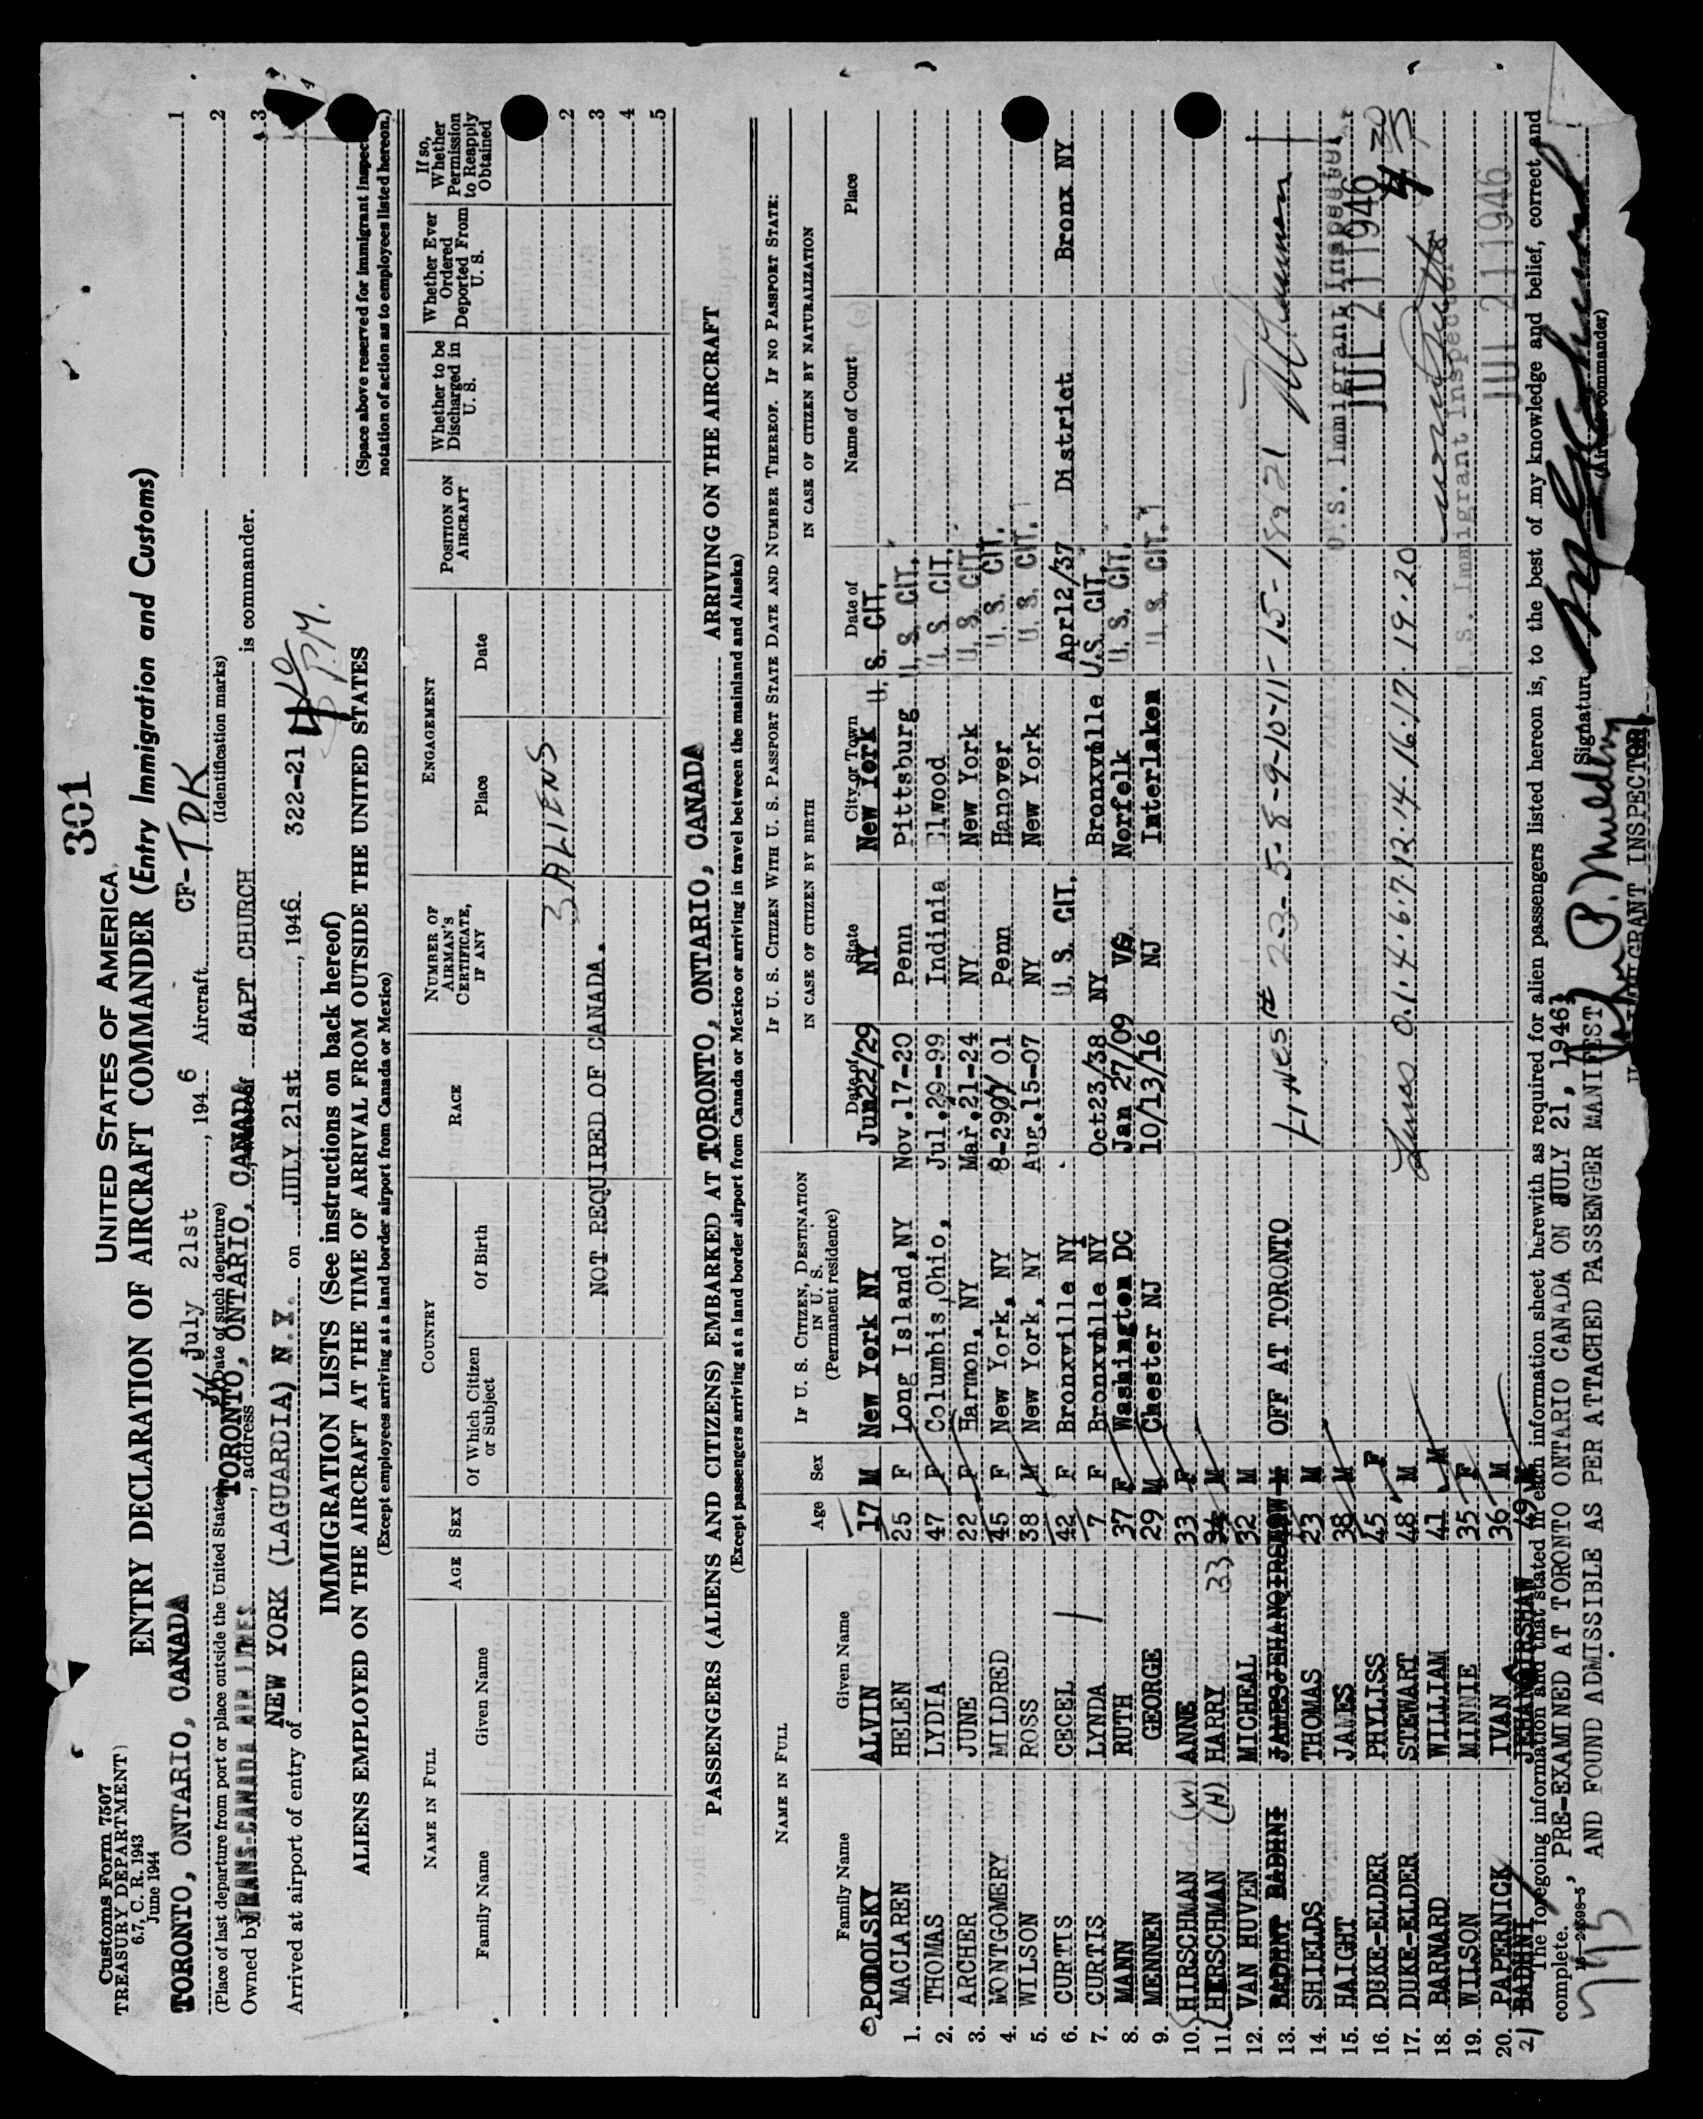 301
Customs Form 7507
TREASURY DEPARTMENT
6.7, C. R. 1943
June 1944
UNITED STATES OF AMERICA
ENTRY DECLARATION OF AIRCRAFT COMMANDER (Entry Immigration and Customs)
TORONTO, ONTARIO, CANADA July 21st, 1946 Aircraft CF-TDK
(Place of last departure from port or place outside the United States) (Date of such departure) (Identification marks)
Owned by TRANS-CANADA AIR LINES, address TORONTO, ONTARIO, CANADA CAPT CHURCH is commander.
Arrived at airport of entry of NEW YORK (LAGUARDIA) N.Y. on JULY 21st, 1946 322-21 P.M.
1
2
3
(Space above reserved for immigrant inspec
notation of action as to employees listed hereon.)
IMMIGRATION LISTS (See instructions on back hereof)
ALIENS EMPLOYED ON THE AIRCRAFT AT THE TIME OF ARRIVAL FROM OUTSIDE THE UNITED STATES
(Except employees arriving at a land border airport from Canada or Mexico)
NAME IN FULL AGE SEX COUNTRY RACE NUMBER OF AIRMAN'S CERTIFICATE, IF ANY ENGAGEMENT POSITION ON AIRCRAFT Whether to be Discharged in U. S. Whether Ever Ordered Deported From U. S. If so, Whether Permission to Reapply Obtained
Family Name Given Name Of Which Citizen or Subject Of Birth Place Date
3 ALIENS 2
NOT REQUIRED OF CANADA. 3
4
5
PASSENGERS (ALIENS AND CITIZENS) EMBARKED AT TORONTO, ONTARIO, CANADA ARRIVING ON THE AIRCRAFT
(Except passengers arriving at a land border airport from Canada or Mexico or arriving in travel between the mainland and Alaska)
NAME IN FULL Age Sex IF U. S. CITIZEN, DESTINATION IN U. S. (Permanent residence) IF U. S. CITIZEN WITH U. S. PASSPORT STATE DATE AND NUMBER THEREOF. IF NO PASSPORT STATE:
IN CASE OF CITIZEN BY BIRTH IN CASE OF CITIZEN BY NATURALIZATION
Family Name Given Name Date of State City or Town Date of Name of Court Place
PODOLSKY ALVIN 17 M New York NY Jun22/29 NY New York U. S. CIT.
1. MACLAREN HELEN 25 F Long Island, NY Nov.17-20 Penn Pittsburg U. S. CIT.
2. THOMAS LYDIA 47 F Columbis, Ohio, Jul.29-99 Indinia Elwood U. S. CIT.
3. ARCHER JUNE 22 F Harmon, NY Mar.21-24 NY New York U. S. CIT.
4. MONTGOMERY MILDRED 45 F New York, NY 8-29 01 Penn Hanover U. S. CIT.
5. WILSON ROSS 38 M New York, NY Aug.15-07 NY New York U. S. CIT.
6. CURTIS CECEL 42 F Bronxville NY U. S. CIT. Apr12/37 District Bronx NY
7. CURTIS LYNDA 7 F Bronxville NY Oct23/38 NY Bronxville U.S. CIT
8. MANN RUTH 37 F Washington DC Jan 27/09 VG Norfelk U. S. CIT.
9. MENNEN GEORGE 29 M Chester NJ 10/13/16 NJ Interlaken U. S. CIT.
10. HIRSCHMAN (W) ANNE 33 F
11. HIRSCHMAN (H) HARRY 33 34 M
12. VAN HUVEN MICHEAL 32 M
13. BADHNI M OFF AT TORONTO Lines # 2-3-5-8-9-10-11-15-18 & 21
14. SHIELDS THOMAS 23 M
15. HAIGHT JAMES 38 M U.S. Immigrant Inspector
16. DUKE-ELDER PHYLISS 45 F JUL 21 1946 4 30
17. DUKE-ELDER STEWART 48 M Lines 0.1.4.6.7.12.14.16.17.19.20
18. BARNARD WILLIAM 41 M
19. WILSON MINNIE 35 F U.S. Immigrant Inspector
20. PAPERNICK IVAN 36 M JUL 21 1946
21 BADHNI JEHANQIRSHAW 49 M
The foregoing information and that stated in each information sheet herewith as required for alien passengers listed hereon is, to the best of my knowledge and belief, correct and
complete. Signature
16—24598-5 (Aircraft commander)
PRE-EXAMINED AT TORONTO ONTARIO CANADA ON JULY 21, 1946
AND FOUND ADMISSIBLE AS PER ATTACHED PASSENGER MANIFEST
IMMIGRANT INSPECTOR